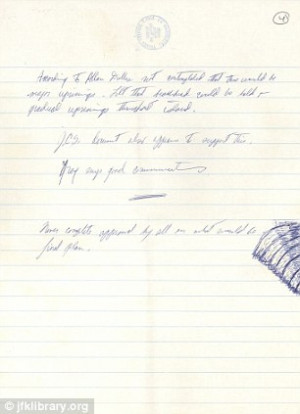 4
According to Allen Dulles not contemplated that this would be
major uprisings. Felt that beachhead could be held &
gradual uprisings throughout island.
J.C.S. document also appears to support this.
says good
Never complete approval by all on what would be
final plan.
© jfklibrary.org